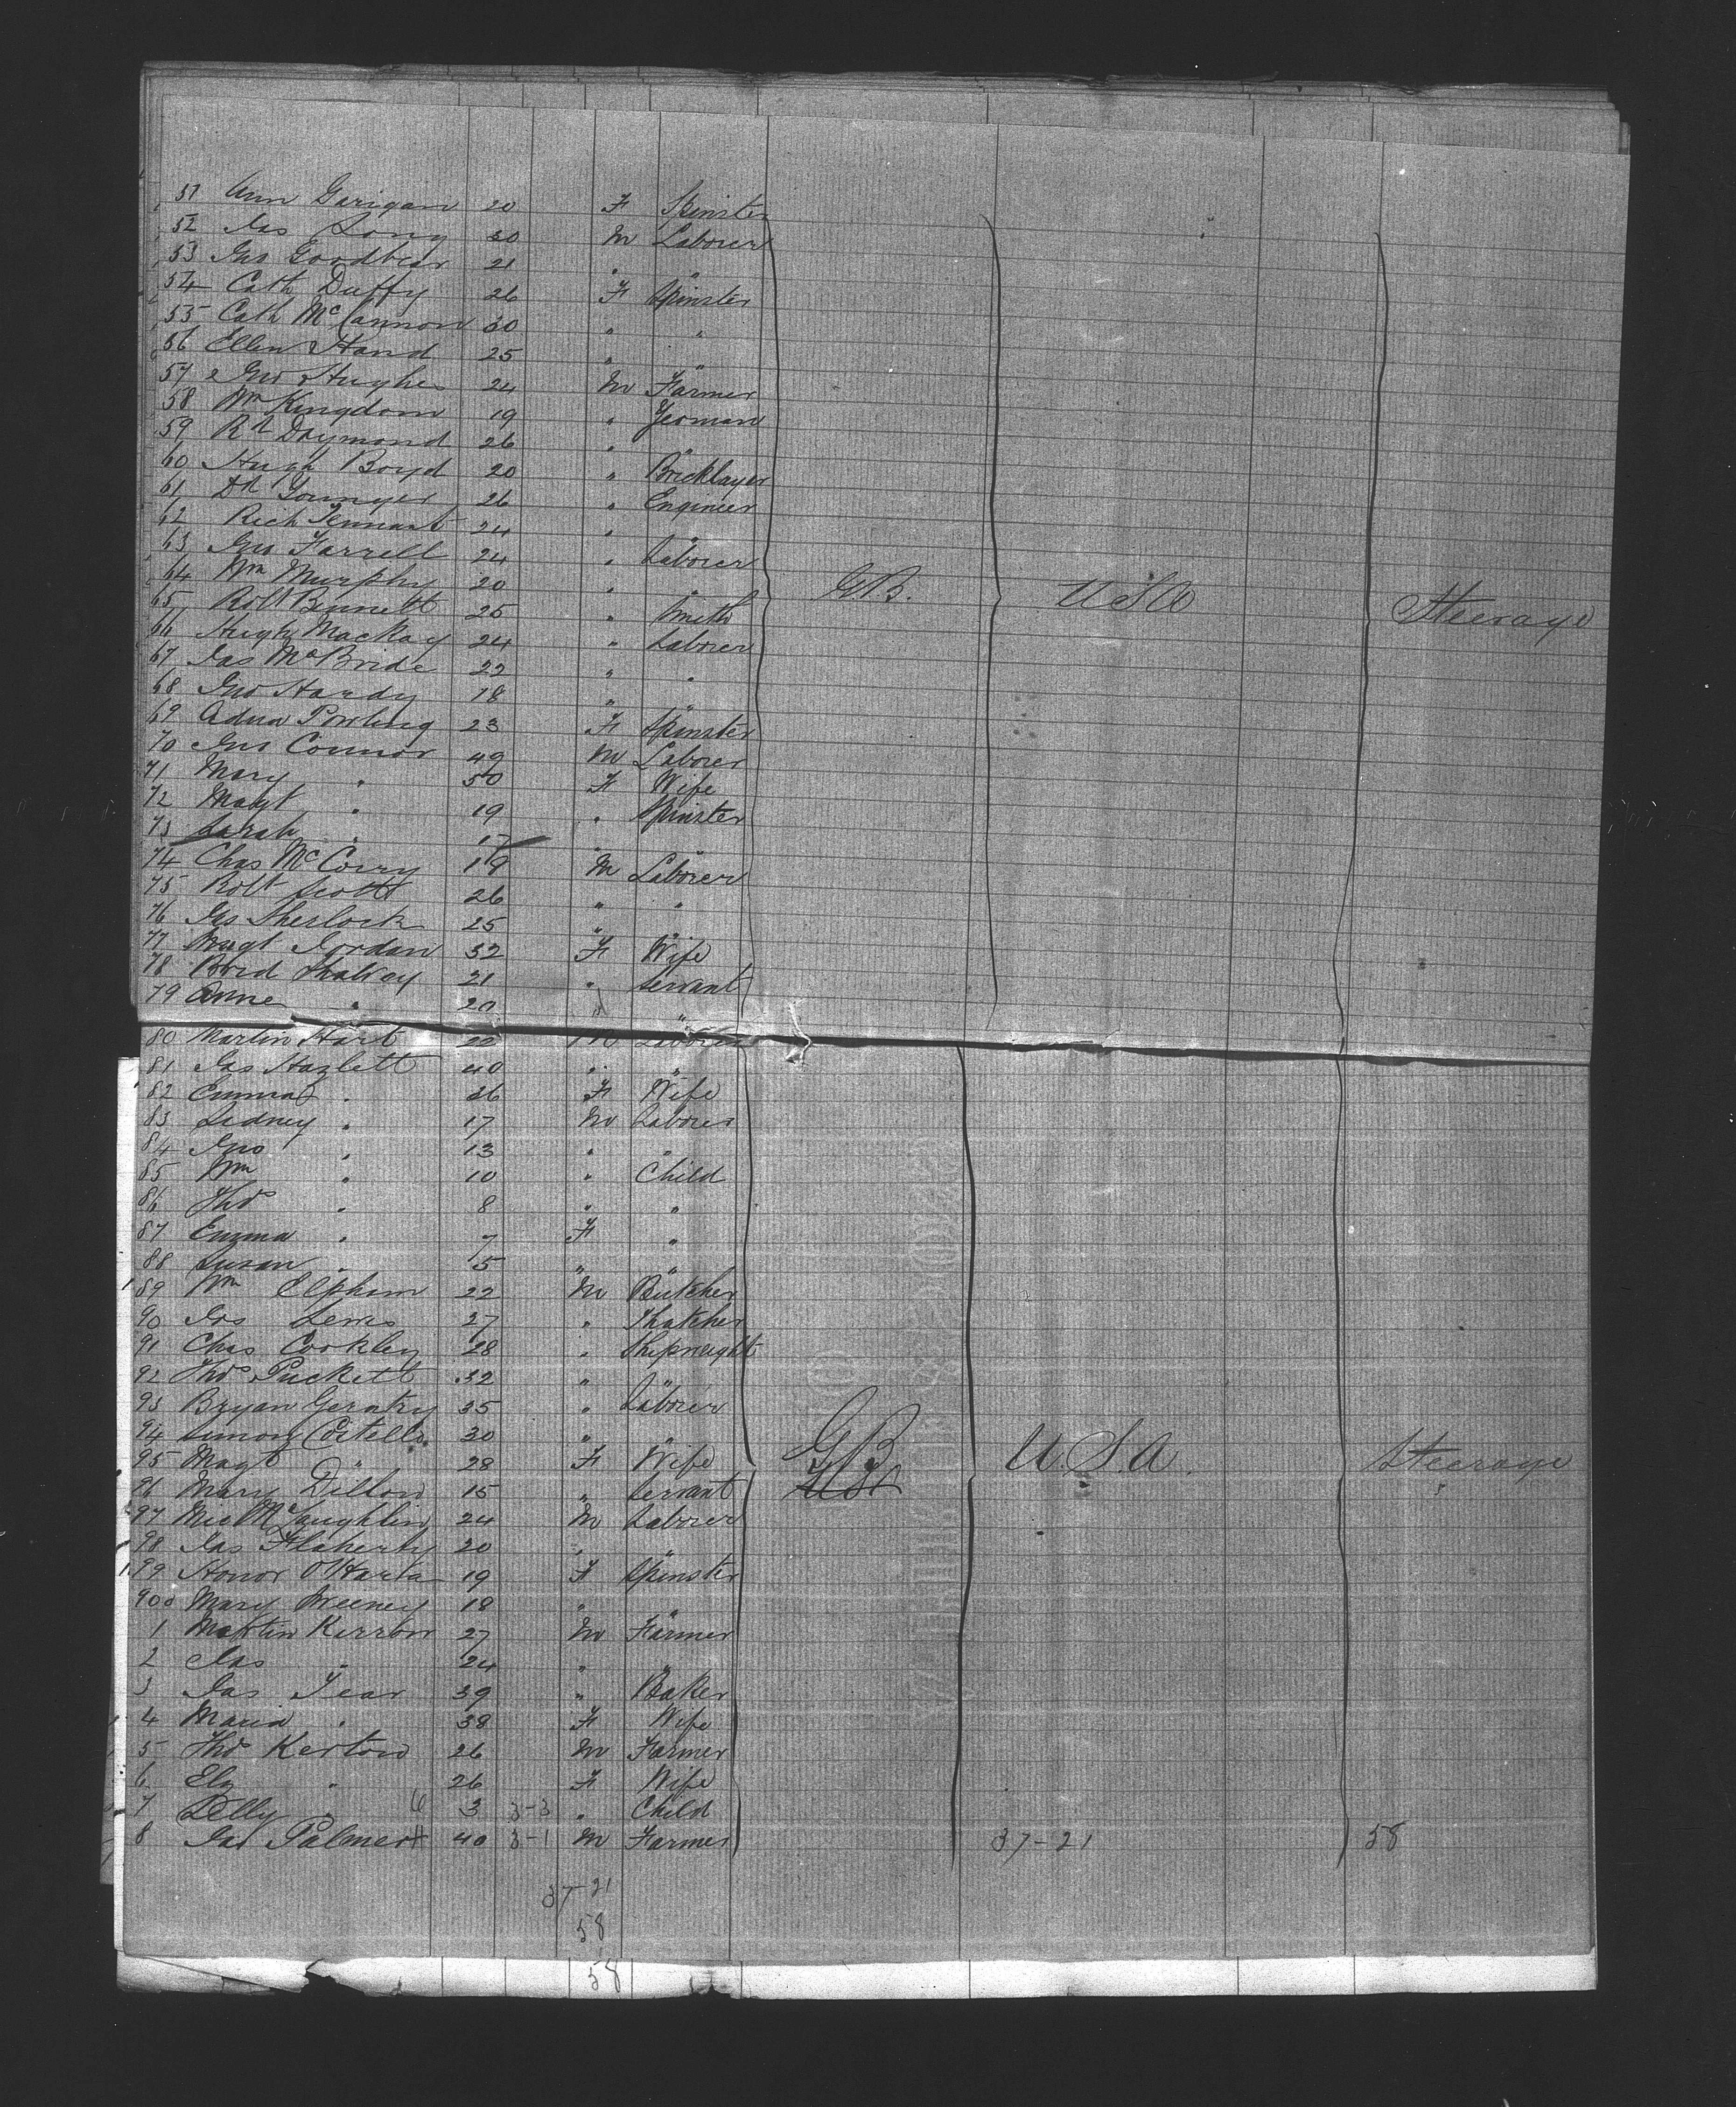 51 Ann Garigan 20 F Spinster
52 Jas Long 30 M Laborer
53 Jas Goodbear 21 " "
54 Cath Duffy 26 F Spinster
55 Cath McCannon 30 " "
56 Ellen Hand 25 " "
57 Jno Hughes 24 M Farmer
58 Wm Kingdom 19 " Yeoman
59 Rd Daymond 26 " "
60 Hugh Boyd 20 " Bricklayer
61 Dd Younger 26 " Engineer
62 Rich Tennant 24 " "
63 Jno Farrell 24 " Laborer
64 Wm Murphy 20 " " GB. USA Steerage
65 Robt Bennett 25 " Smith
66 Hugh Mackay 24 " Laborer
67 Jas McBride 22 " "
68 Jno Hardy 18 " "
69 Adna Powling 23 F Spinster
70 Jno Connor 49 M Laborer
71 Mary " 50 F Wife
72 Magt " 19 " Spinster
73 Sarah " 17 " "
74 Chas McCorry 18 M Laborer
75 Robt Scott 26 " "
76 Jas Sherlock 25 " "
77 Magt Jordan 32 F Wife
78 Brid 21 " Servant
79 Anne " 20 " "
80 Martin Hart 22 M Laborer
81 Jas Hazlett 40 " "
82 Emma " 36 F Wife
83 Sidney " 17 M Laborer
84 Jno " 13 " "
85 Wm " 10 " Child
86 Thos " 8 " "
87 Emma " 7 F "
88 Susan " 5 " "
89 Wm Elphim 22 M Butcher
90 Jos Lewis 27 " Thatcher
91 Chas Cookley 28 " Shipwright
92 Thos Puckett 32 " "
93 Bryan Gerntry 35 " Laborer
94 Simon Costello 30 " "
95 Magt " 28 F Wife GB U.S.A. Steerage
96 Mary Dillon 15 " Servant USA
97 Mic McLaughlin 24 M Laborer
98 Jas Flaherty 20 " "
99 Honor O'Hara 19 F Spinster
900 Mary Sweeney 18 " "
1 Martin Kerrow 27 M Farmer
2 Jas " 24 " "
3 Jas Tear 39 " Baker
4 Maria " 38 F Wife
5 Thos Kerton 26 M Farmer
6 Elz " 26 F Wife
7 Lelly " 3 3-3 " Child
8 Jas Palmer 40 3-1 M Farmer 37-21 58
37-21
58
58